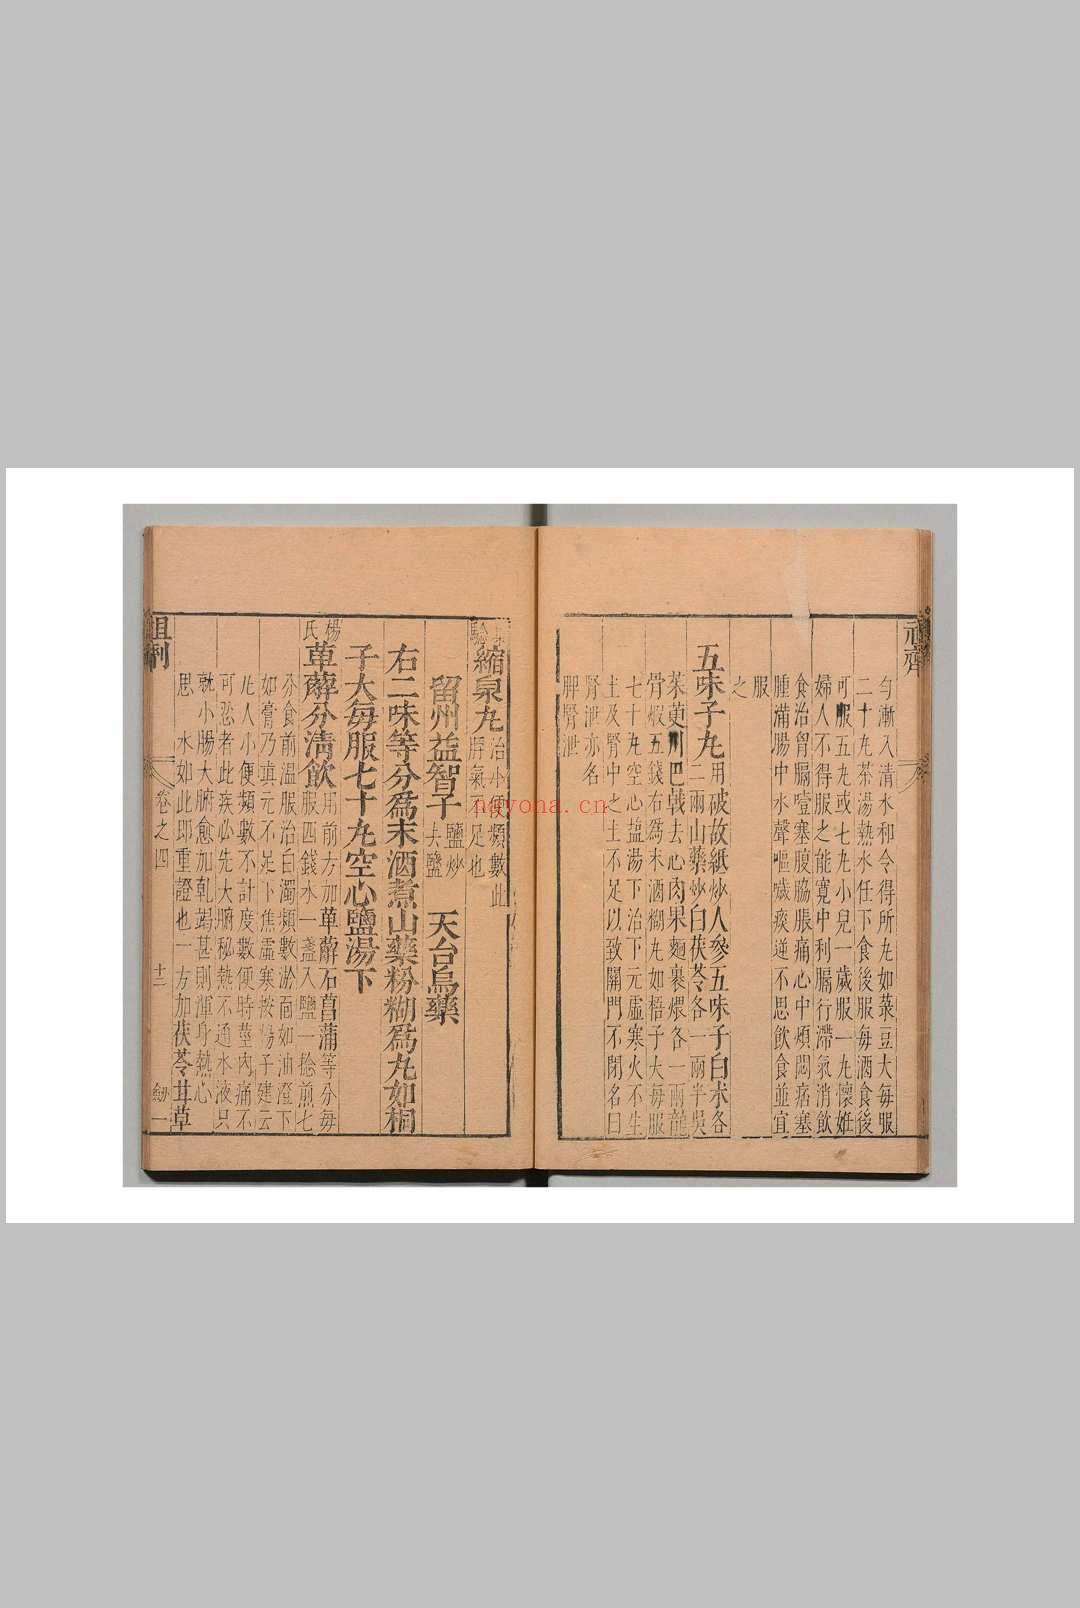 勻漸入清水和令得所丸如菉豆大每服
二十丸茶湯熱水任下食後服每酒食後
可服五丸或七丸小兒一歲服一丸懷姙
婦人不得服之能寬中利膈行滯氣消飲
食治胃膈噎塞腹脇脹痛心中煩悶痞塞
腫滿腸中水聲嘔噦痰逆不思飲食並宜
服
之
五味子丸
用破故紙炒人參五味子白朮各
二兩山藥炒白茯苓各一兩半吳
茱萸川巴戟去心肉果麵裹煨各一兩龍
骨煆五錢右爲末酒糊丸如梧子大每服
七十丸空心鹽湯下治下元虛寒火不生
土及腎中之土不足以致關門不閉名曰
腎泄亦名
脾腎泄
縮泉丸
治小便頻數此
脬氣不足也
留州益智子
鹽炒
去鹽
天台烏藥
右二味等分爲末酒煮山藥粉糊爲丸如桐
子大每服七十丸空心鹽湯下
楊氏
萆薢分清飲
用前方加萆薢石菖蒲等分每
服四錢水一盞入鹽一捻煎七
分食前溫服治白濁頻數淤面如油澄下
如膏乃眞元不足下焦虛寒按楊子建云
凡人小便頻數不計度數便時莖內痛不
可忍者此疾必先大腑秘熱不通水液只
就小腸大腑愈加乹竭甚則渾身熱心
思
水如此即重證也一方加茯苓甘草
卷之四
十三
nayona.cn